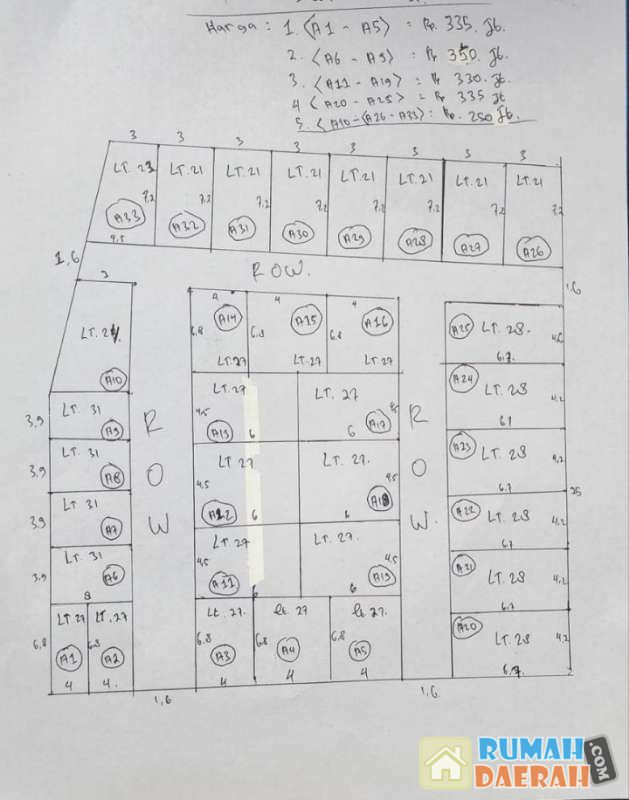 Harga : 1. <A1 - A5> : Rp. 335. Jt.
2. <A6 - A9> : Rp 350. Jt.
3. <A11 - A19> : Rp 330. Jt.
4 <A20 - A25> : Rp 335 Jt
5. <A10 - <A26 - A33> : Rp. 250 Jt.
3 3 3 3 3 3 3 3
LT. 23 LT. 21 LT. 21 LT. 21 LT. 21 LT. 21 LT. 21 LT. 21
7,2 7,2 7,2 7,2 7,2 7,2 7,2 7,2
A33 A32 A31 A30 A29 A28 A27 A26
4,5
1,6
ROW.
1,6
3
LT. 24
A10
4 4
A14 A15 A16
6,8 6,8 6,8
LT.27 LT.27 LT.27
A25 LT. 28.
6,7
3,9 LT. 31
A9
3,9 LT. 31
A8
3,9 LT. 31
A7
3,9 LT. 31
A6
8
ROW
LT.27 LT. 27
4,5
A13 6 6 A17
LT 27 LT 27.
4,5 4,5
A12 6 6 A18
LT.27 LT. 27.
4,5 4,5
A11 6 A19
ROW.
A24 LT. 28 4,2
A23 LT. 28 4,2
6,7
25
A22 LT. 28 4,2
67
A21 LT. 28 4,2
6,7
A20 LT. 28 4,2
6,7
2
LT. 27 LT. 27
6,8 6,8
A1 A2
4 4.
Lt. 27. Lt. 27 Lt. 27.
6,8 6,8 6,8
A3 A4 A5
4 4 4
1,6 1,6
RUMAH
DAERAH
.COM